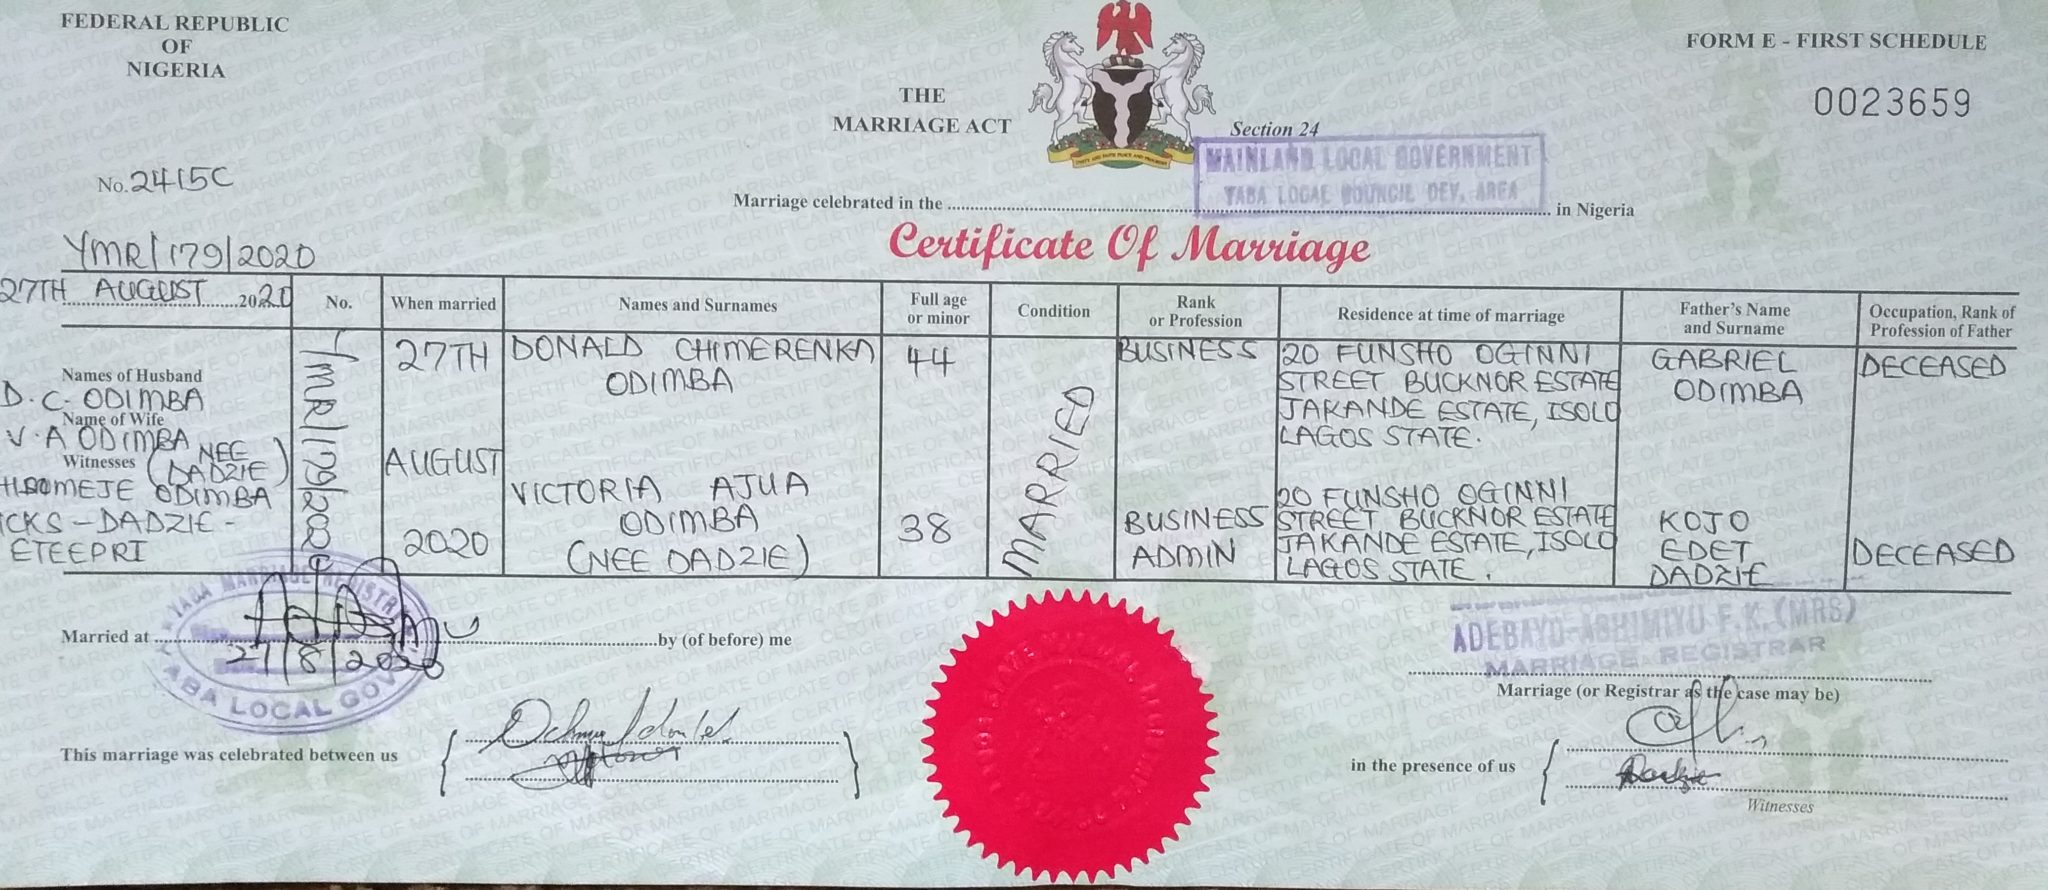 FEDERAL REPUBLIC
OF
NIGERIA
THE
MARRIAGE ACT
FORM E - FIRST SCHEDULE
0023659
Section 24
MAINLAND LOCAL GOVERNMENT
YABA LOCAL COUNCIL DEV. AREA
No. 2415C
Marriage celebrated in the in Nigeria
Certificate Of Marriage
YMR/179/2020
27TH AUGUST 2020
No.
When married
Names and Surnames
Full age
or minor
Condition
Rank
or Profession
Residence at time of marriage
Father's Name
and Surname
Occupation, Rank of
Profession of Father
Names of Husband
D.C. ODIMBA
Name of Wife
V.A ODIMBA NEE
Witnesses (DADZIE)
ODIMBA
-DADZIE-
ETEEPRI
YMR/179/2020
27TH
AUGUST
2020
DONALD CHIMERENKA
ODIMBA
44
MARRIED
BUSINESS
20 FUNSHO OGINNI
STREET BUCKNOR ESTATE
JAKANDE ESTATE, ISOLO
LAGOS STATE.
GABRIEL
ODIMBA
DECEASED
VICTORIA AJUA
ODIMBA
(NEE DADZIE)
38
BUSINESS
ADMIN
20 FUNSHO OGINNI
STREET BUCKNOR ESTATE
JAKANDE ESTATE, ISOLO
LAGOS STATE.
KOJO
EDET
DADZIE
DECEASED
YABA MARRIAGE REGISTRY
27/8/2020
YABA LOCAL GOV
Married at by (of before) me
ADEBAYO-ASHIMIYU F.K. (MRS)
MARRIAGE REGISTRAR
Marriage (or Registrar as the case may be)
This marriage was celebrated between us
in the presence of us
Witnesses